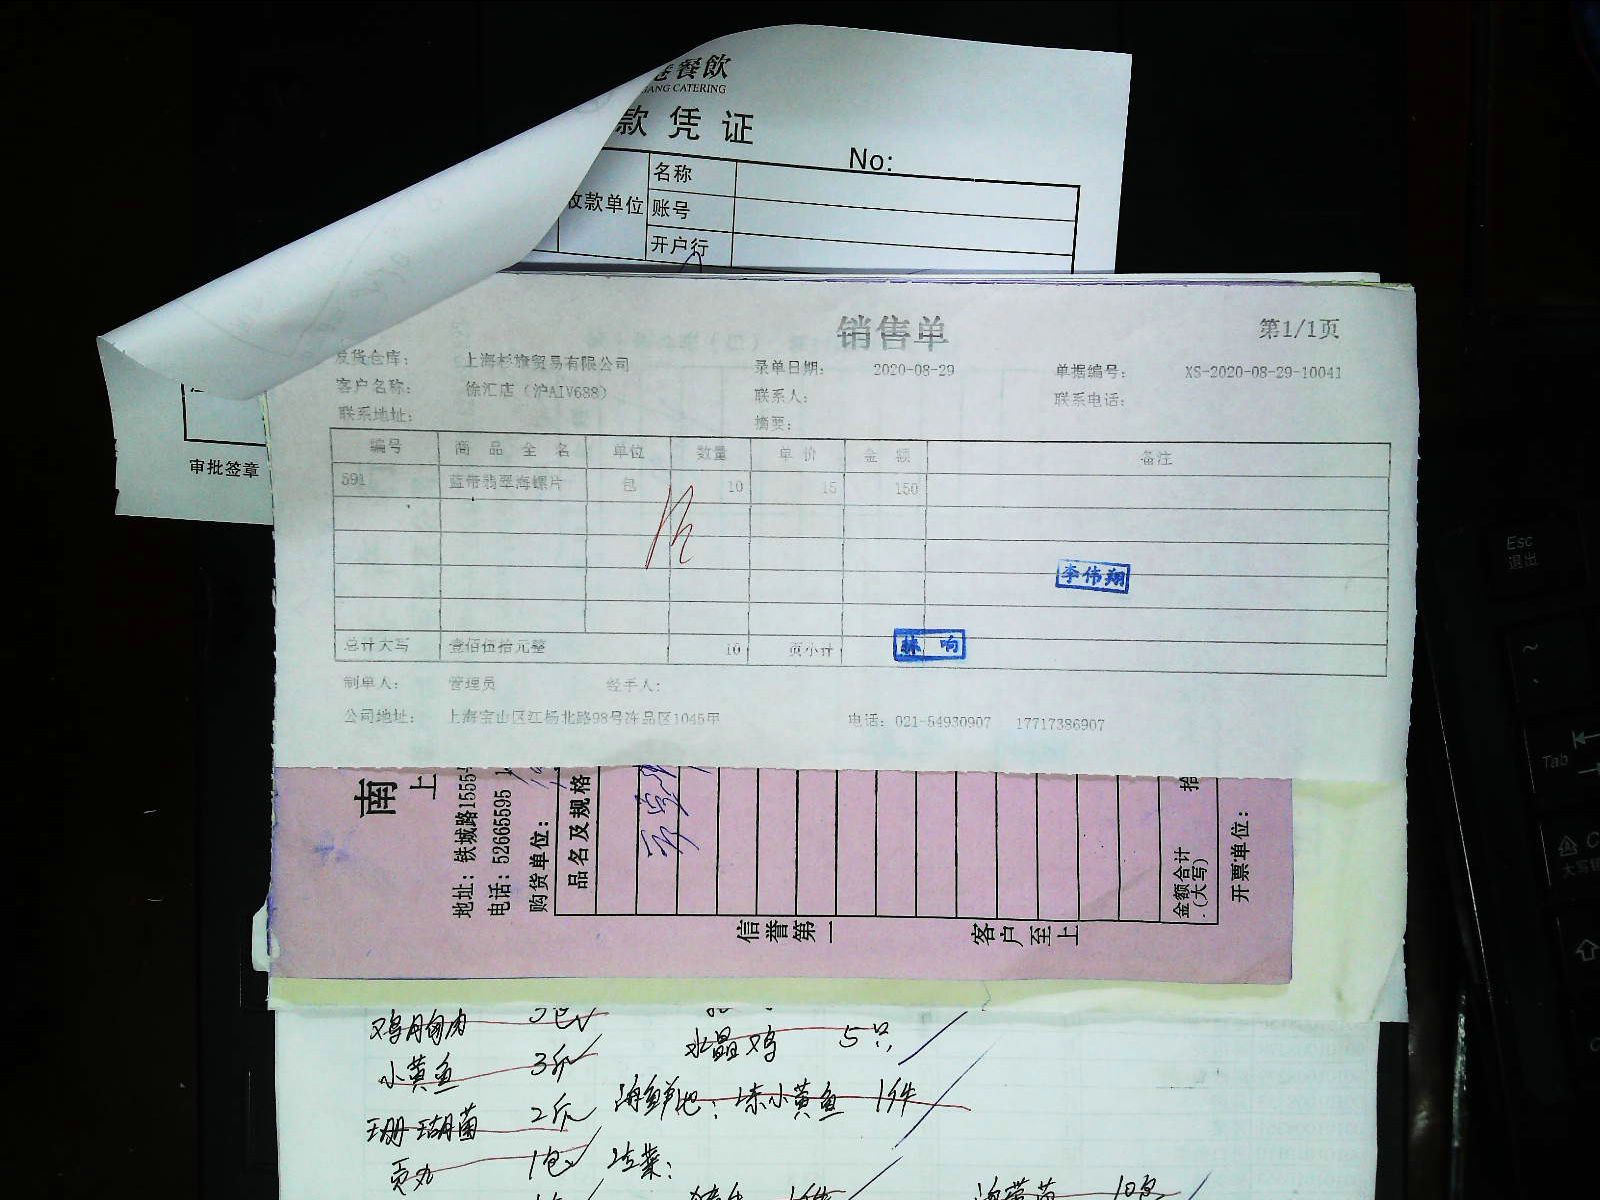 餐飲
ANG CATERING
款凭证
No:
收款单位
名称
账号
开户行
审批签章
销售单
第1/1页
发货仓库： 上海杉旗贸易有限公司 录单日期： 2020-08-29 单据编号： XS-2020-08-29-10041
客户名称： 徐汇店（沪AIV688） 联系人： 联系电话：
联系地址： 摘要：
编号 商品全名 单位 数量 单价 金额 备注
591 蓝带翡翠海螺片 包 10 15 150
李伟翔
总计大写 壹佰伍拾元整 10 页小计
响
制单人： 管理员 经手人：
公司地址： 上海宝山区江杨北路98号冻品区1045甲 电话：021-54930907 17717386907
南
上
地址：铁城路1555
电话：52665595
购货单位：
品名及规格
金额合计
（大写）
拾
开票单位：
信誉第一
客户至上
鸡胸肉 5包
水晶鸡 5只
小黄鱼 3斤
海鲜池：冻小黄鱼 1件
珊瑚菌 2斤
贡丸 1包
1件
海带苗 10包